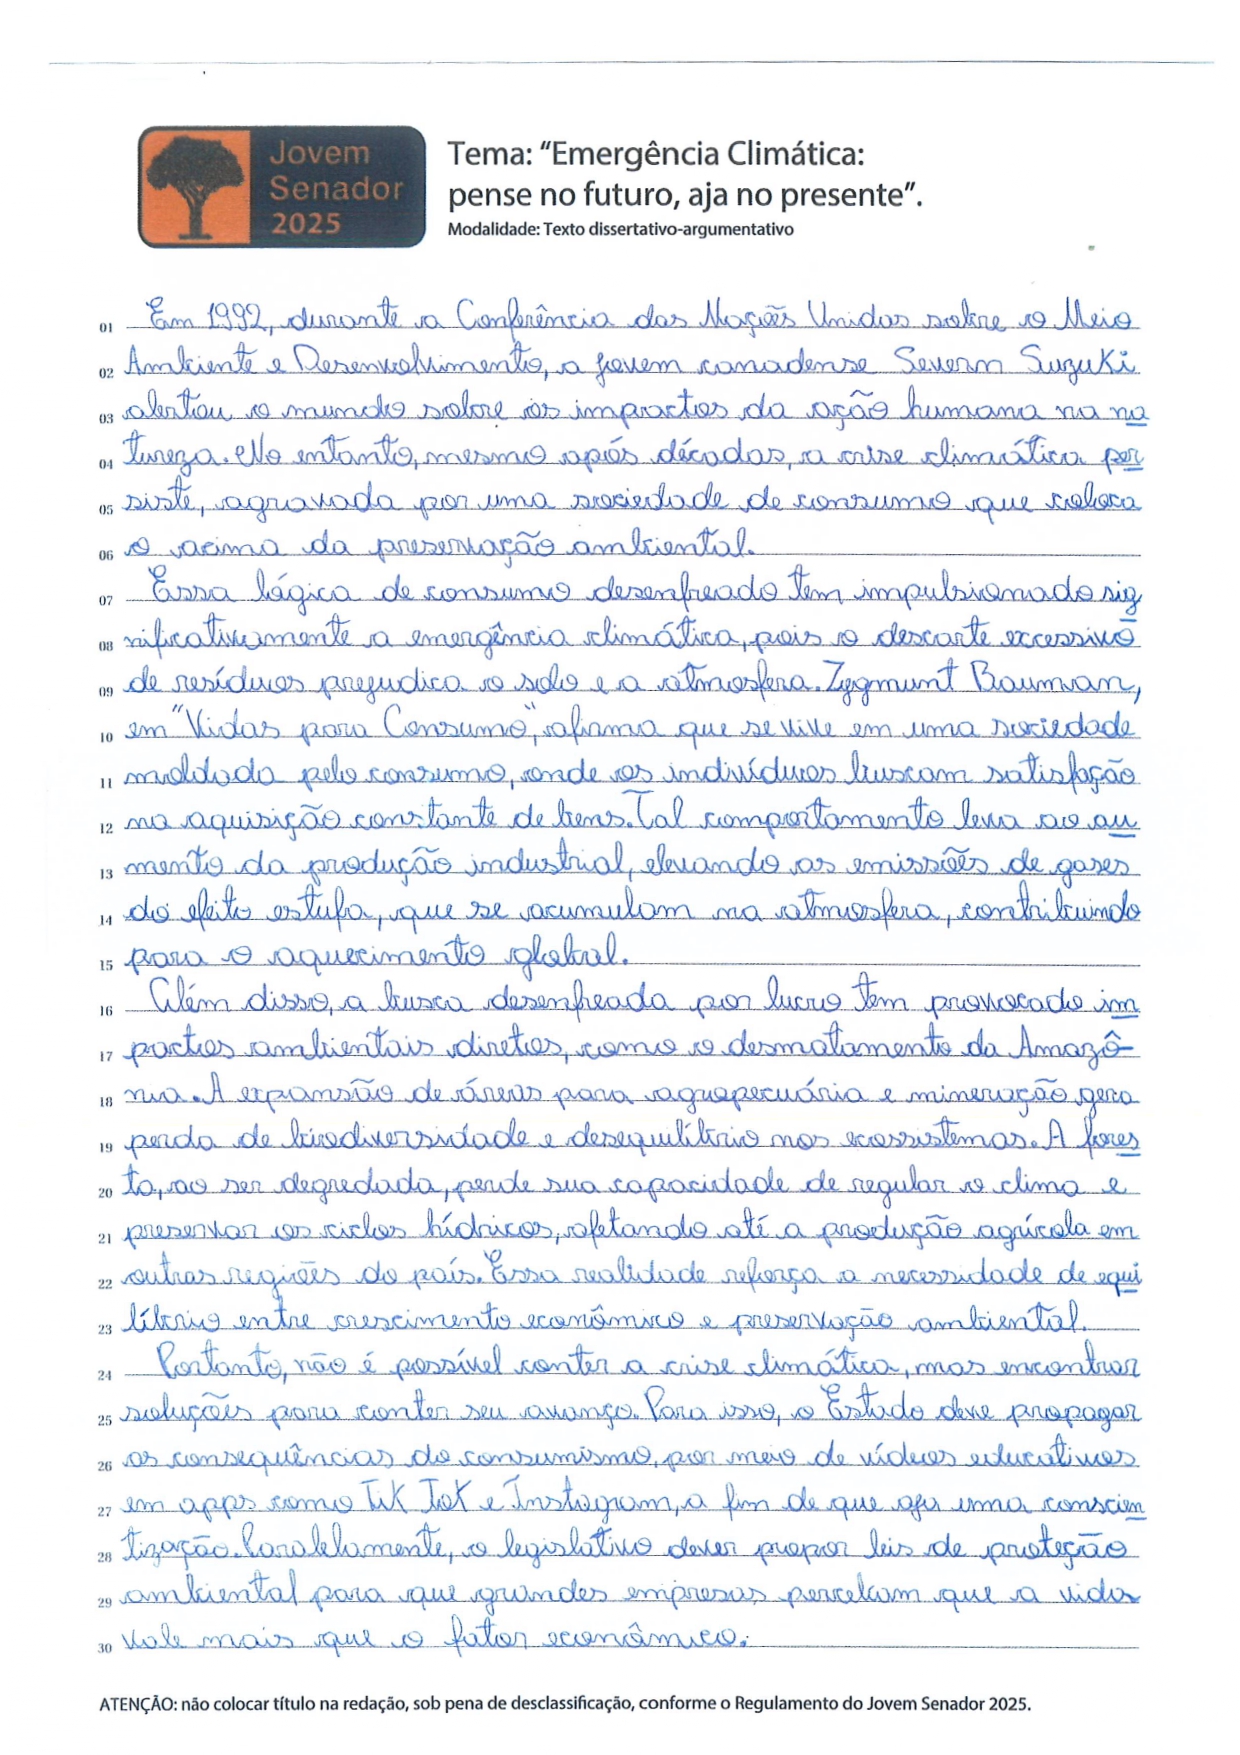 Jovem
Senador
2025
Tema: "Emergência Climática:
pense no futuro, aja no presente".
Modalidade: Texto dissertativo-argumentativo
01 Em 1992, durante a Conferência das Nações Unidas sobre o Meio
02 Ambiente e Desenvolvimento, a jovem canadense Severn Suzuki
03 alertou o mundo sobre os impactos da ação humana na na
04 tureza. No entanto, mesmo após décadas, a crise climática per
05 siste, agravada por uma sociedade de consumo que coloca
06 o acima da preservação ambiental.
07 Essa lógica de consumo desenfreado tem impulsionado sig
08 nificativamente a emergência climática, pois o descarte excessivo
09 de resíduos prejudica o solo e a atmosfera. Zygmunt Bauman,
10 em "Vidas para Consumo", afirma que se vive em uma sociedade
11 moldada pelo consumo, onde os indivíduos buscam satisfação
12 na aquisição constante de bens. Tal comportamento leva ao au
13 mento da produção industrial, elevando as emissões de gases
14 do efeito estufa, que se acumulam na atmosfera, contribuindo
15 para o aquecimento global.
16 Além disso, a busca desenfreada por lucro tem provocado im
17 pactos ambientais diretos, como o desmatamento da Amazô-
18 nia. A expansão de áreas para agropecuária e mineração gera
19 perda de biodiversidade e desequilíbrio nos ecossistemas. A flores
20 ta, ao ser degredada, perde sua capacidade de regular o clima e
21 preservar os ciclos hídricos, afetando até a produção agrícola em
22 outras regiões do país. Essa realidade reforça a necessidade de equi
23 líbrio entre crescimento econômico e preservação ambiental.
24 Portanto, não é possível conter a crise climática, mas encontrar
25 soluções para conter seu avanço. Para isso, o Estado deve propagar
26 as consequências do consumismo, por meio de vídeos educativos
27 em apps como Tik Tok e Instagram, a fim de que aja uma conscien
28 tização. Paralelamente, o legislativo dever propor leis de proteção
29 ambiental para que grandes empresas percebam que a vida
30 vale mais que o fator econômico.
ATENÇÃO: não colocar título na redação, sob pena de desclassificação, conforme o Regulamento do Jovem Senador 2025.